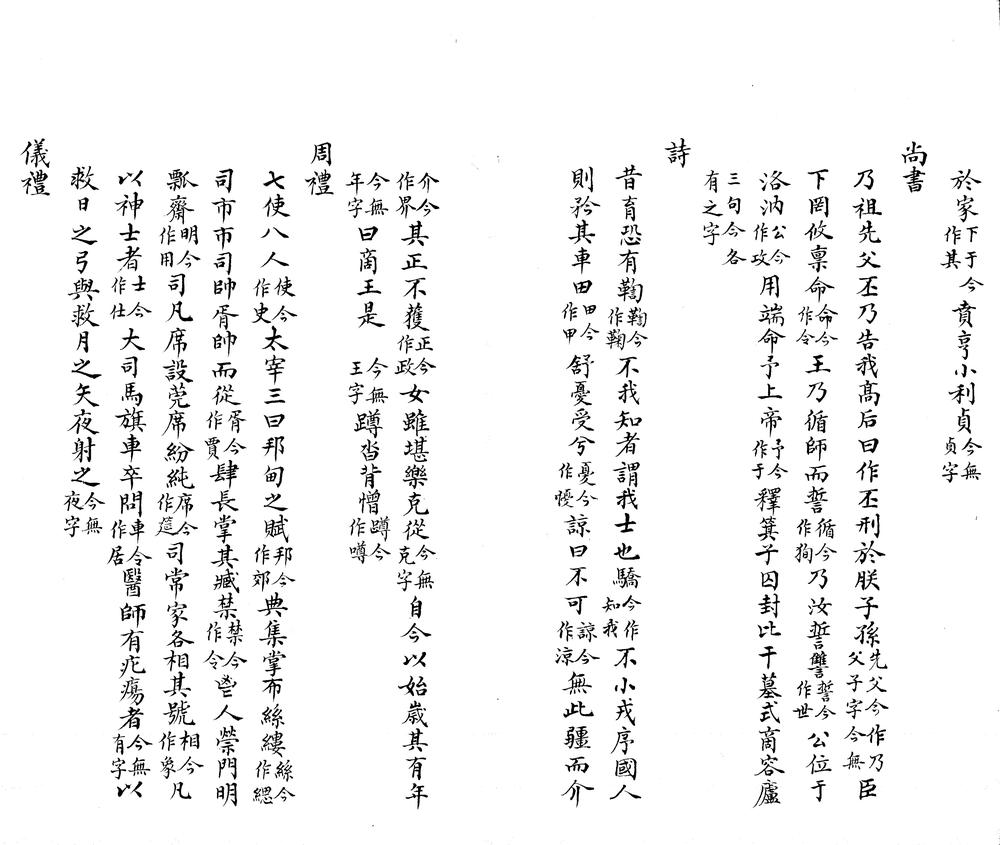 於家下于今作其賁亨小利貞今無貞字
尚書
乃祖先父丕乃告我髙后曰作丕刑於朕子孫先父今作乃父子字今無臣
下罔攸稟命命今作令王乃循師而誓循今作狥乃汝誓讐誓今作世公位于
洛汭公今作攻用端命予上帝予今作于釋箕子囚封比干墓式啇容廬
三句今各有之字
詩
昔育恐有鞫鞫今作鞠不我知者謂我士也驕今作知我不小戎序國人
則矜其車田田今作甲舒憂受兮憂今作懮諒曰不可諒今作涼無此疆而介
介今作界其正不獲正今作政女雖堪樂克從今無克字自今以始歲其有年
今無年字曰啇王是今無王字蹲沓背憎蹲今作噂
周禮
七使八人使今作史太宰三曰邦甸之賦邦今作郊典集掌布絲縷絲今作緦
司市市司帥胥帥而從胥今作賈肆長掌其臧禁禁今作令鬯人禜門明
瓢齎明今作用司凡席設莞席紛純席今作筵司常家各相其號相今作象凡
以神士者士今作仕大司馬旗車卒問車今作居醫師有疕瘍者今無有字以
救日之弓與救月之矢夜射之今無夜字
儀禮